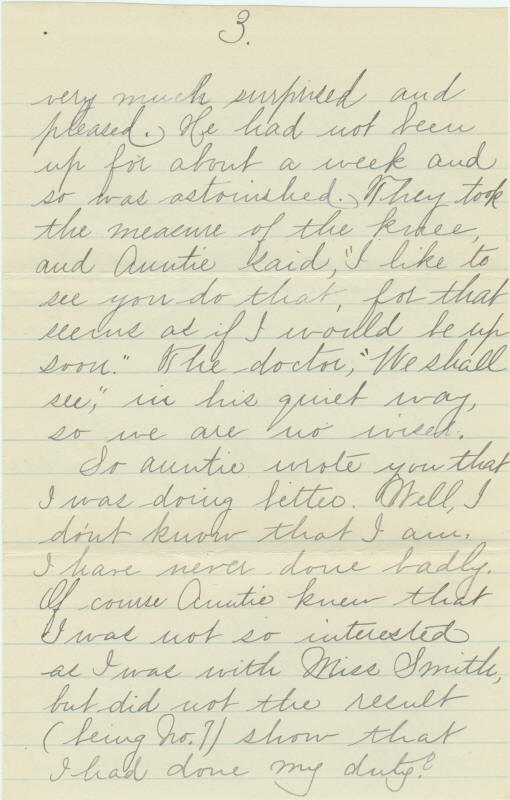 3.
very much surprised and
pleased. He had not been
up for about a week and
so was astonished. They took
the measure of the knee,
and Auntie said, "I like to
see you do that, for that
seems as if I would be up
soon." The doctor, "We shall
see," in his quiet way,
so we are no wiser.
So auntie wrote you that
I was doing better. Well, I
don't know that I am.
I have never done badly.
Of course Auntie knew that
I was not so interested
as I was with Miss Smith,
but did not the result
(being No. 7) show that
I had done my duty?